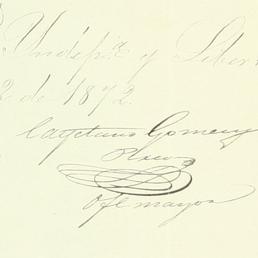 Indep.ª y Liber
2 de 1872.
Cayetano Gomez y
Perez
Ofl mayor